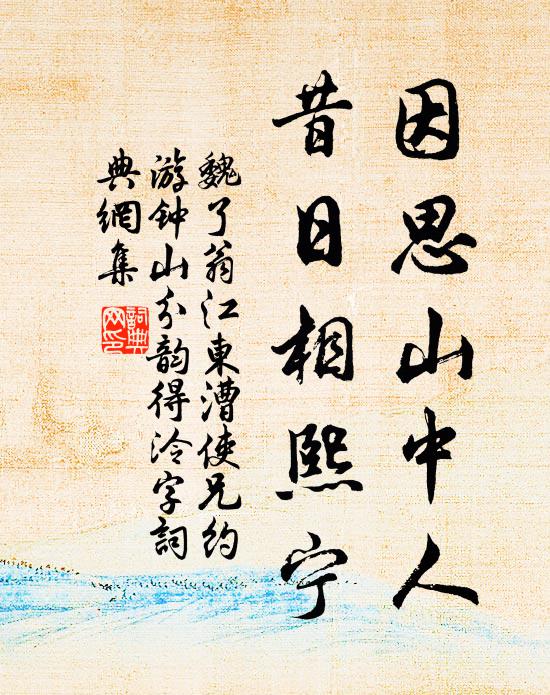 因思山中人
昔日相熙宁
魏了翁江東漕使兄约
游钟山分韵得泠字詞
典網集
詞典网印